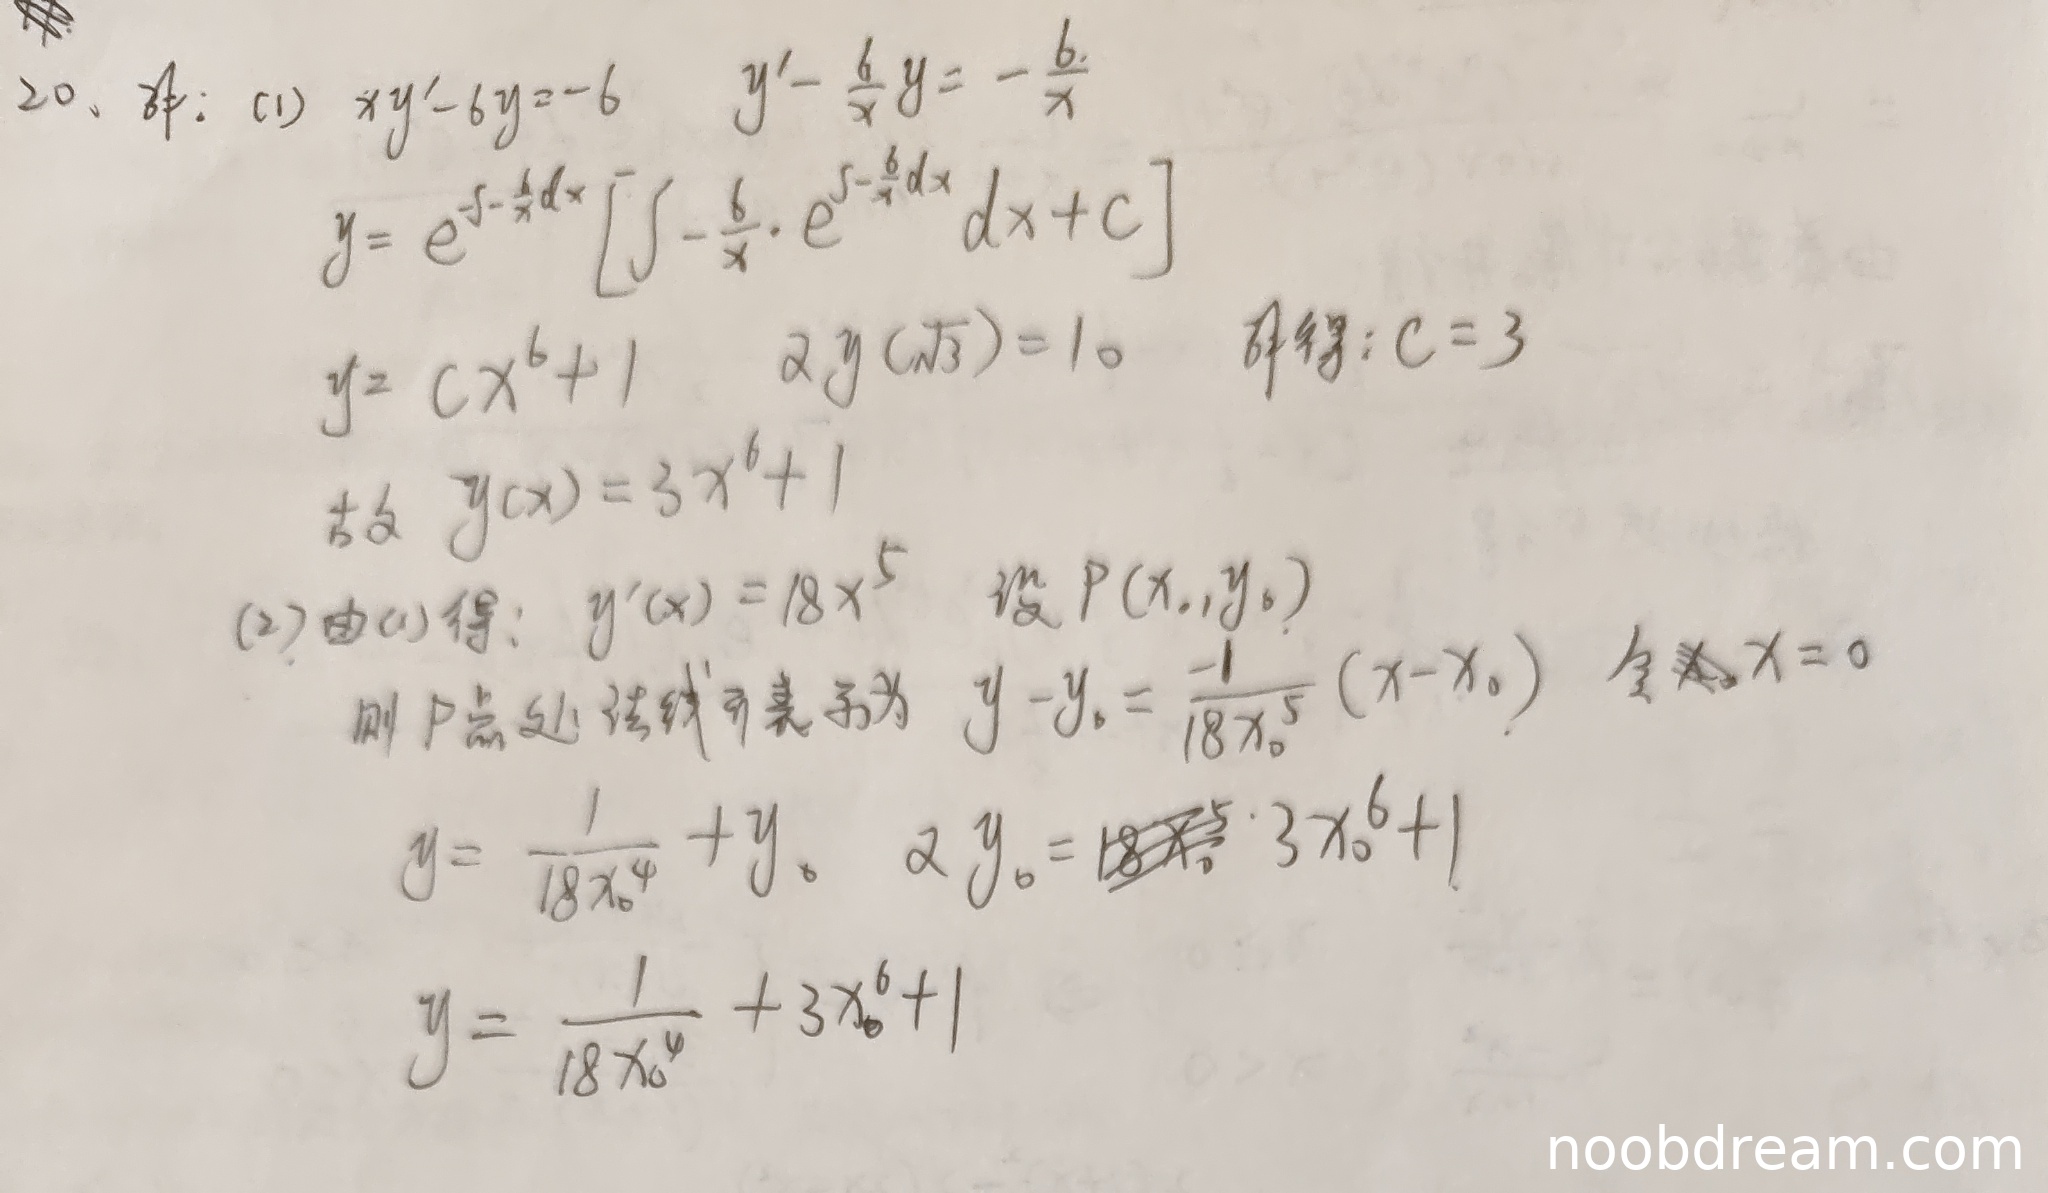 20、解：(1) xy′-6y=-6 y′-\frac{6}{x}y=-\frac{6}{x}
y=e^{-∫-\frac{6}{x}dx}[∫-\frac{6}{x}·e^{∫-\frac{6}{x}dx}dx+C]
y=Cx^6+1 又y(√3)=10 解得：C=3
故 y(x)=3x^6+1
(2) 由(1)得：y′(x)=18x^5 设P(x₀,y₀)
则P点处法线可表示为 y-y₀=\frac{-1}{18x₀^5}(x-x₀) 令x=0
y=\frac{1}{18x₀^4}+y₀ 又y₀=3x₀^6+1
y=\frac{1}{18x₀^4}+3x₀^6+1
noobdream.com